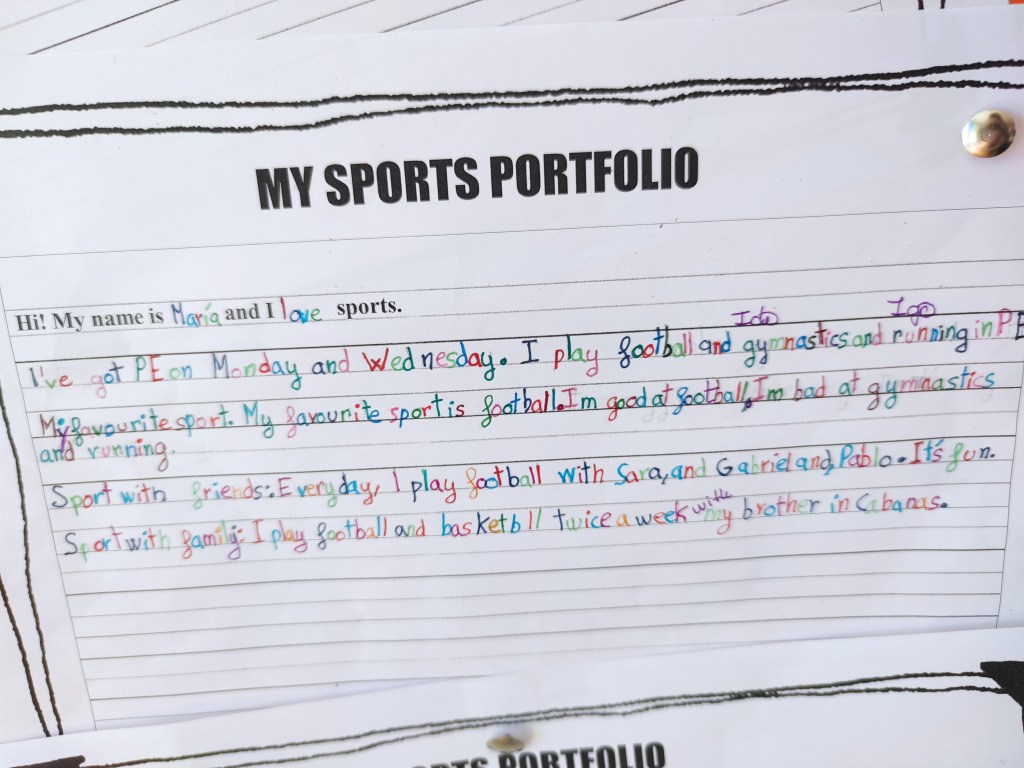 MY SPORTS PORTFOLIO
Hi! My name is María and I love sports.
I do I go
I've got PE on Monday and Wednesday. I play football and gymnastics and running in PE
My favourite sport. My favourite sport is football. I'm good at football, I'm bad at gymnastics
and running.
Sport with friends: Everyday, I play football with Sara, and Gabriel and Pablo. It's fun.
with
Sport with family: I play football and basketbll twice a week my brother in Cabanas.
PORTFOLIO